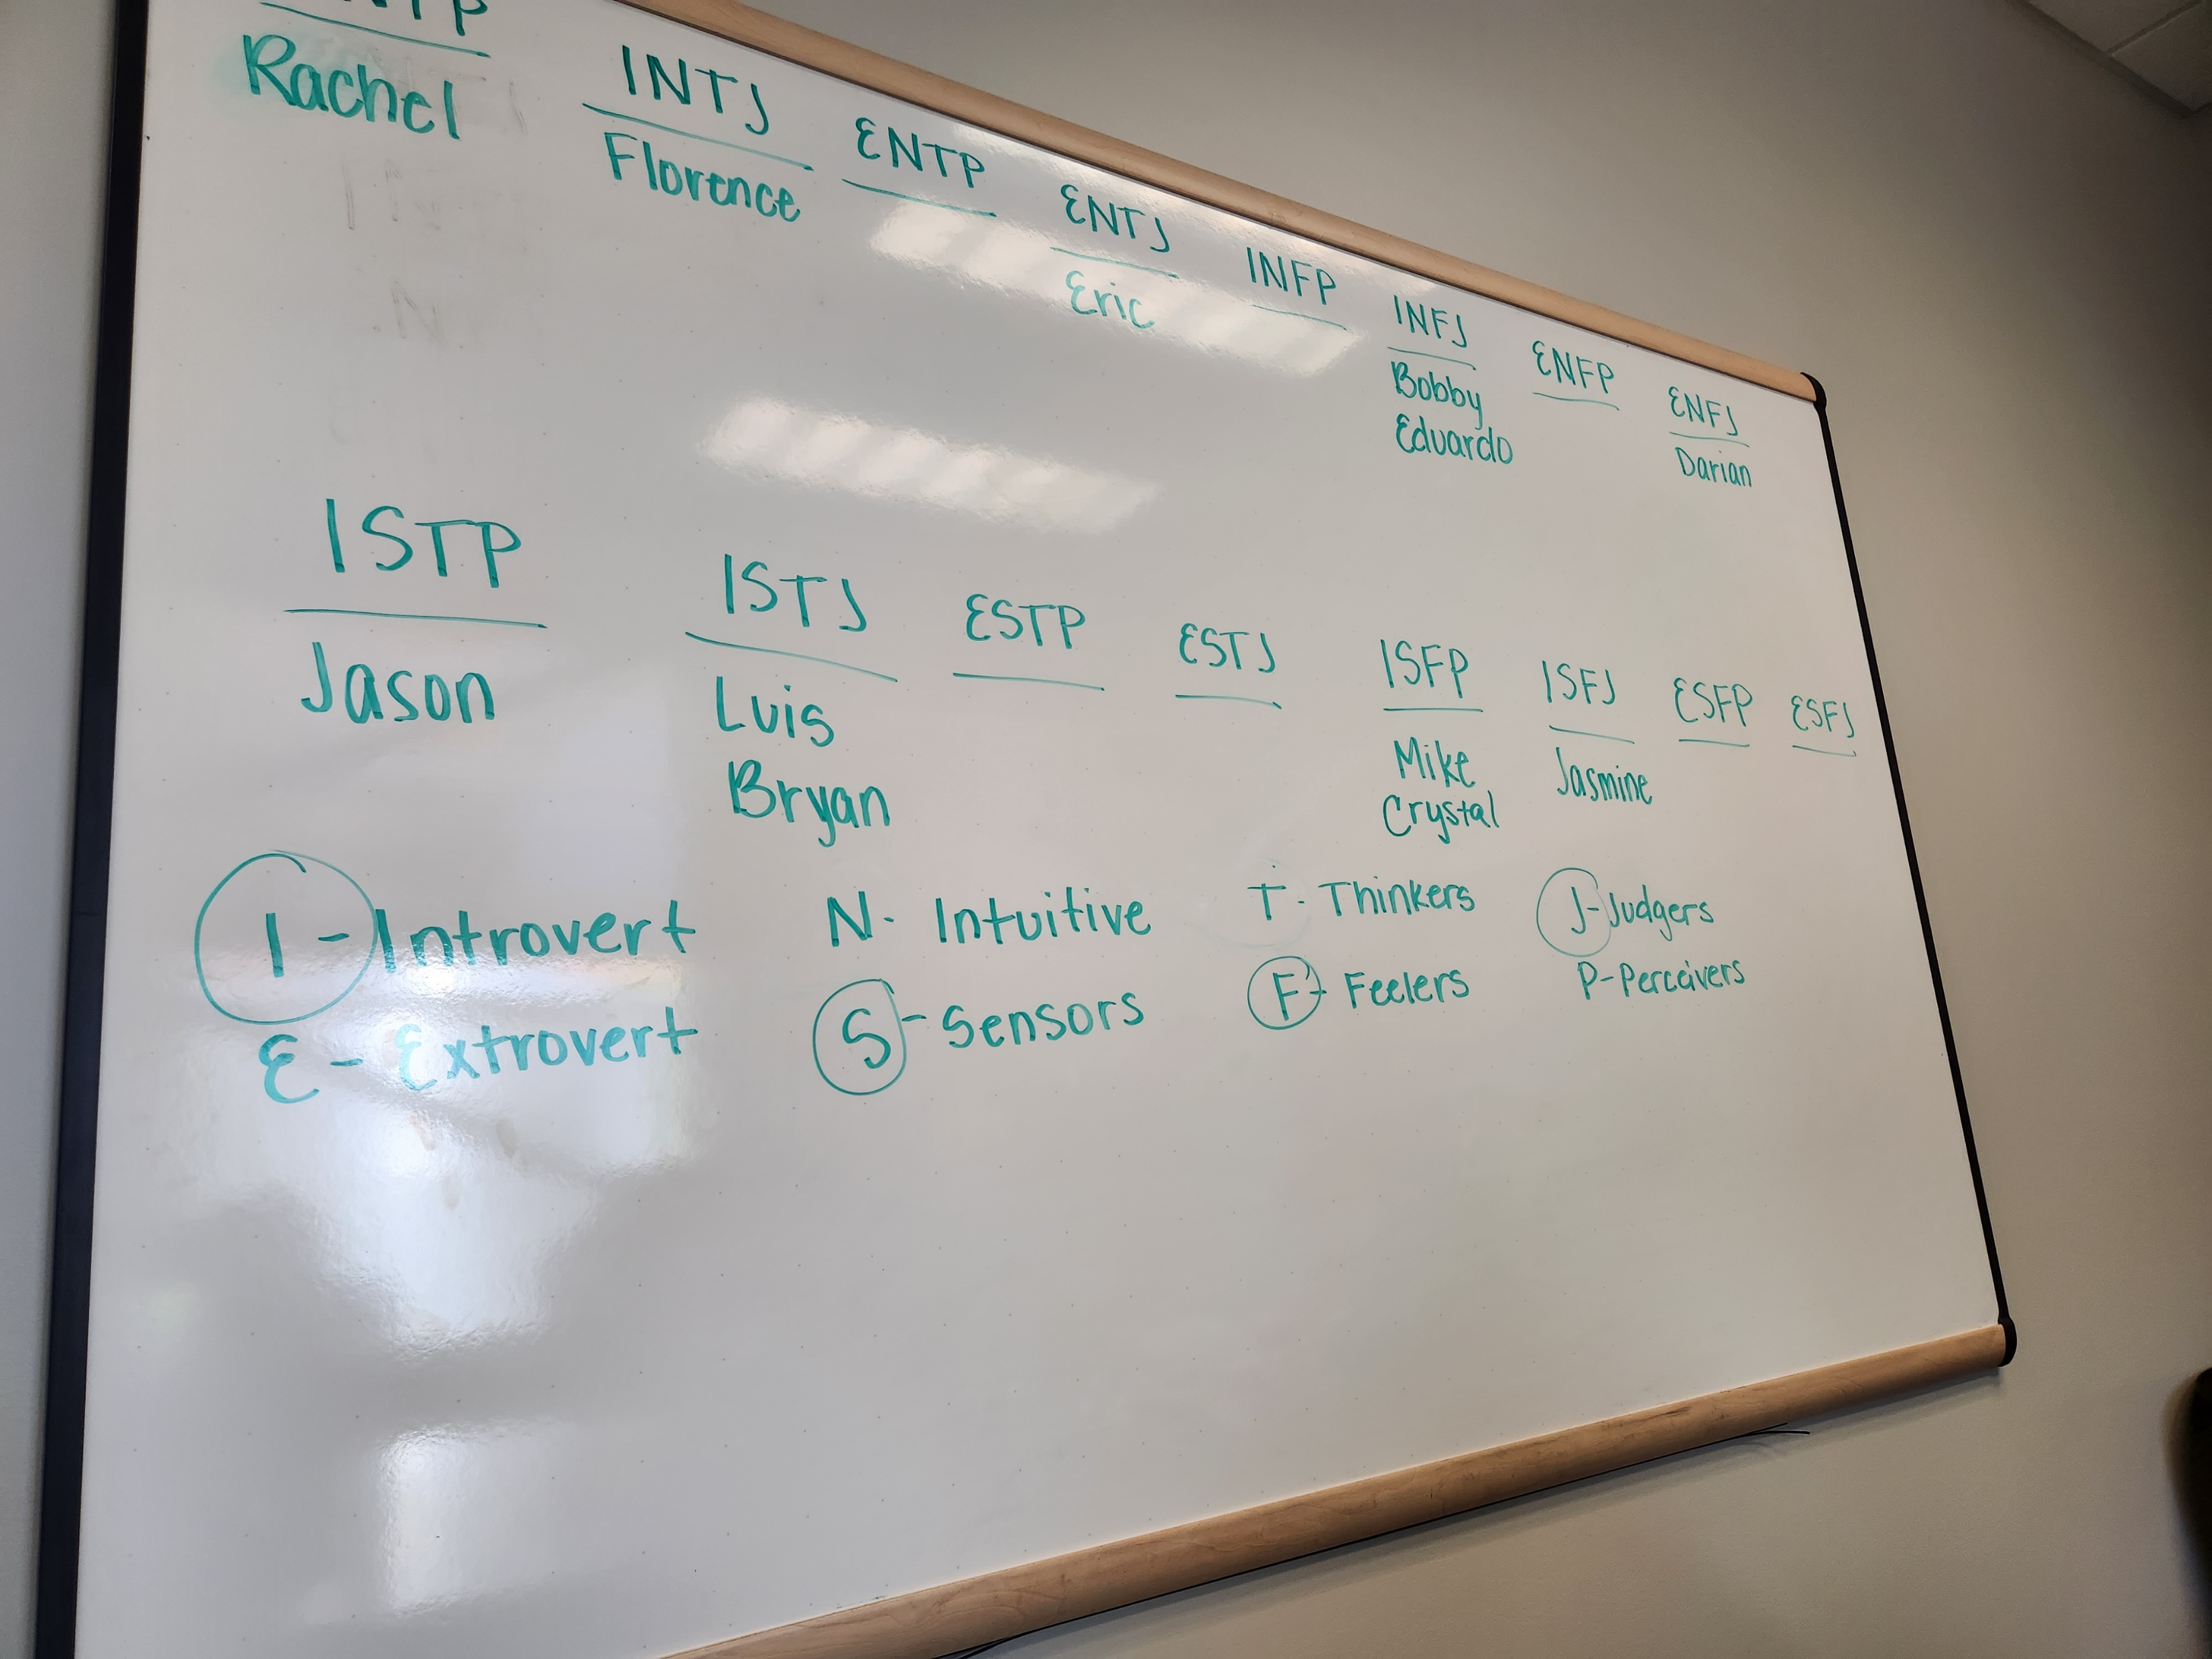 Rachel
INTJ
Florence
ENTP
ENTJ
Eric
INFP
INFJ
Bobby
Eduardo
ENFP
ENFJ
Darian
ISTP
Jason
ISTJ
Luis
Bryan
ESTP
ESTJ
ISFP
Mike
Crystal
ISFJ
Jasmine
ESFP
ESFJ
I - Introvert
E - Extrovert
N- Intuitive
S - Sensors
T- Thinkers
F- Feelers
J- Judgers
P-Perceivers